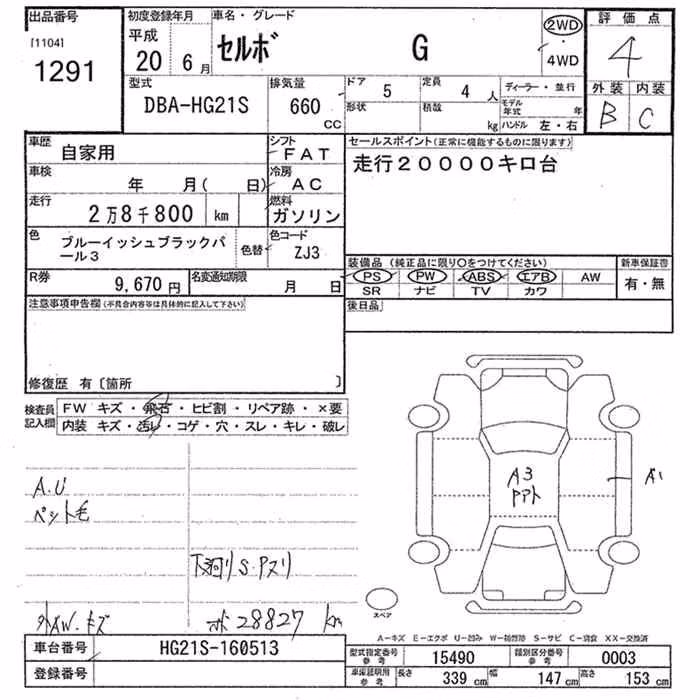 出品番号
[1104]
1291
初度登録年月
平成
20 6 月
車名・グレード
セルボ G
2WD
4WD
評価点
4
外装 内装
B C
型式
DBA-HG21S
排気量
660
CC
ドア
5
定員
4 人
形状
積載
kg
ディーラー・並行
モデル年式 年
ハンドル 左・右
車歴
自家用
シフト
FAT
車検
年 月( 日)
冷房
AC
走行
2万8千800 km
燃料
ガソリン
色
ブルーイッシュブラックパール3
色替
色コード
ZJ3
R券
9,670 円
名変通知期限
月 日
セールスポイント(正常に機能するものに限ります)
走行20000キロ台
装備品(純正品に限り○をつけてください)
PS PW ABS エアB AW
SR ナビ TV カワ
新車保証書
有・無
後日品
注意事項申告欄(不具合内容等は具体的に記入して下さい)
修復歴 有〔箇所 〕
検査員記入欄
FW キズ・飛石・ヒビ割・リペア跡・×要
内装 キズ・汚レ・コゲ・穴・スレ・キレ・破レ
A.U
ペット毛
下廻りS.Pスリ
外AW.キズ
28827 km
A3
A1
スペア
A−キズ E−エクボ U−凹み W−補修跡 S−サビ C−腐食 XX−交換済
車台番号
HG21S-160513
登録番号
型式指定番号
参考
15490
類別区分番号
参考
0003
車庫証明用
参考
長さ
339 cm
幅
147 cm
高さ
153 cm